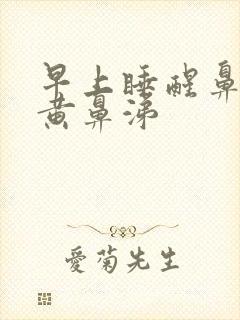 早上睡醒鼻
黄鼻涕
愛菊先生